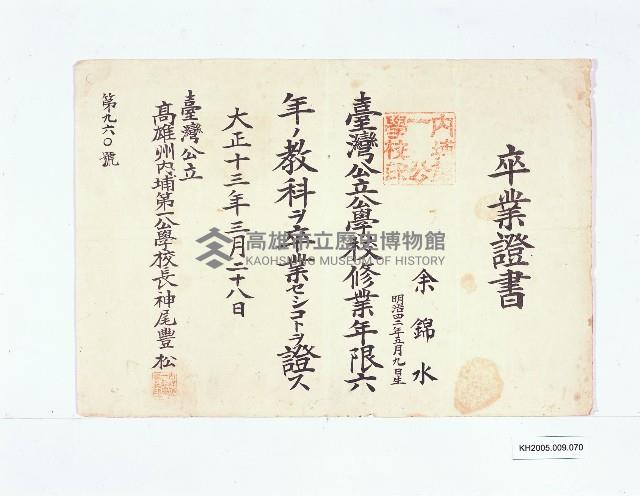 卒業證書
余錦水
明治四二年五月九日生
臺灣公立公學校修業年限六
年ノ教科ヲ卒業セシコトヲ證ス
大正十三年三月二十八日
臺灣公立
高雄州內埔第一公學校長神尾豐松
第九六〇號
高雄市立歷史博物館
KAOHSIUNG MUSEUM OF HISTORY
KH2005.009.070